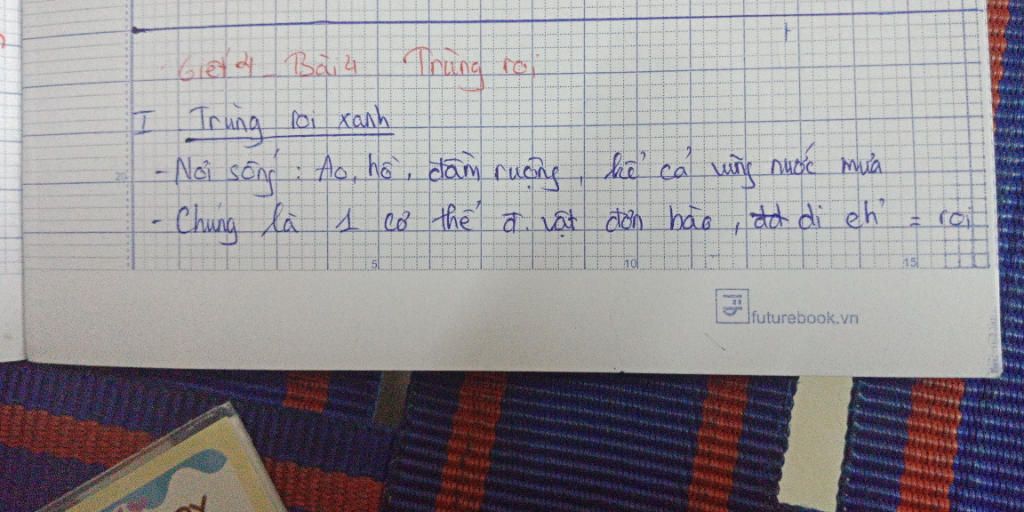 Tiết 4 - Bài 4 Trùng roi
I Trùng roi xanh
- Nơi sống : Ao, hồ, đầm ruộng, kể cả vũng nước mưa
- Chúng là 1 cơ thể đ. vật đơn bào, di ch' = roi
5 10 15
futurebook.vn